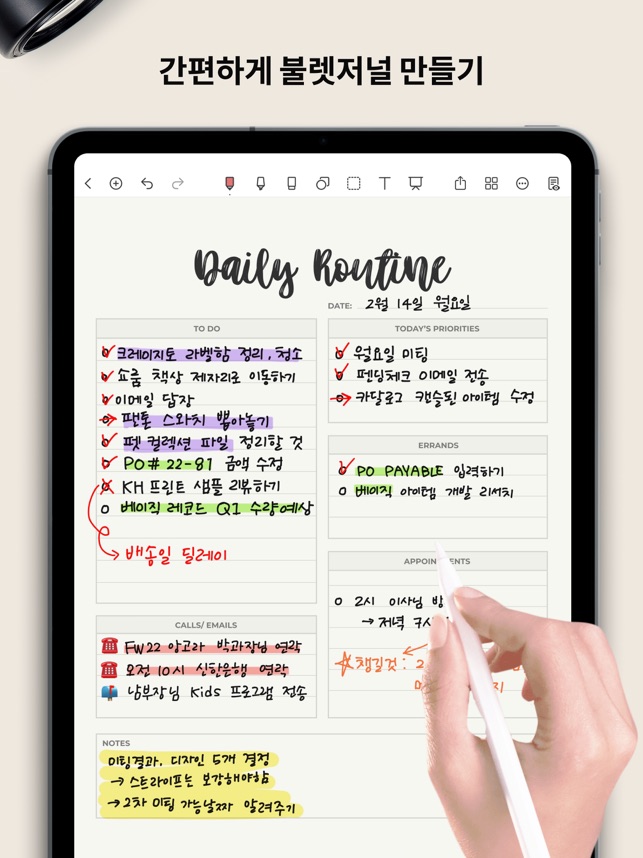 간편하게 불렛저널 만들기
Daily Routine
DATE: 2월 14일 월요일
TO DO
크레이지토 라벨함 정리, 청소
쇼룸 책상 제자리로 이동하기
이메일 답장
팬톤 스와치 뽑아놓기
펫 컬렉션 파일 정리할 것
PO# 22-81 금액 수정
KH 프린트 샘플 리뷰하기
베이직 레코드 Q1 수량예상
배송일 딜레이
TODAY'S PRIORITIES
월요일 미팅
펜딩체크 이메일 전송
카달로그 캔슬된 아이템 수정
ERRANDS
PO PAYABLE 입력하기
베이직 아이템 개발 리서치
APPOIN ENTS
2시 이사님
→ 저녁
챙길것: 2
CALLS/ EMAILS
FW22 앙고라 박과장님 연락
오전 10시 신한은행 연락
남부장님 Kids 프로그램 전송
NOTES
미팅결과. 디자인 5개 결정
→ 스트라이프는 보강해야함
→ 2차 미팅 가능날짜 알려주기